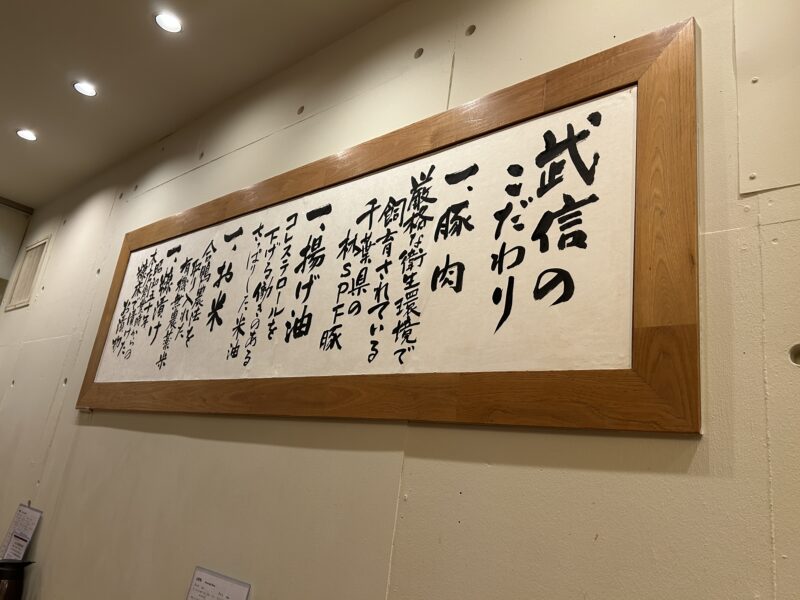 武信の
こだわり
一、豚肉
厳格な衛生環境で
飼育されている
千葉県の
林SPF豚
一、揚げ油
コレステロールを
下げる働きのある
さっぱりした米油
一、お米
合鴨農法
取り入れを
有機無農薬米
一、糠漬け